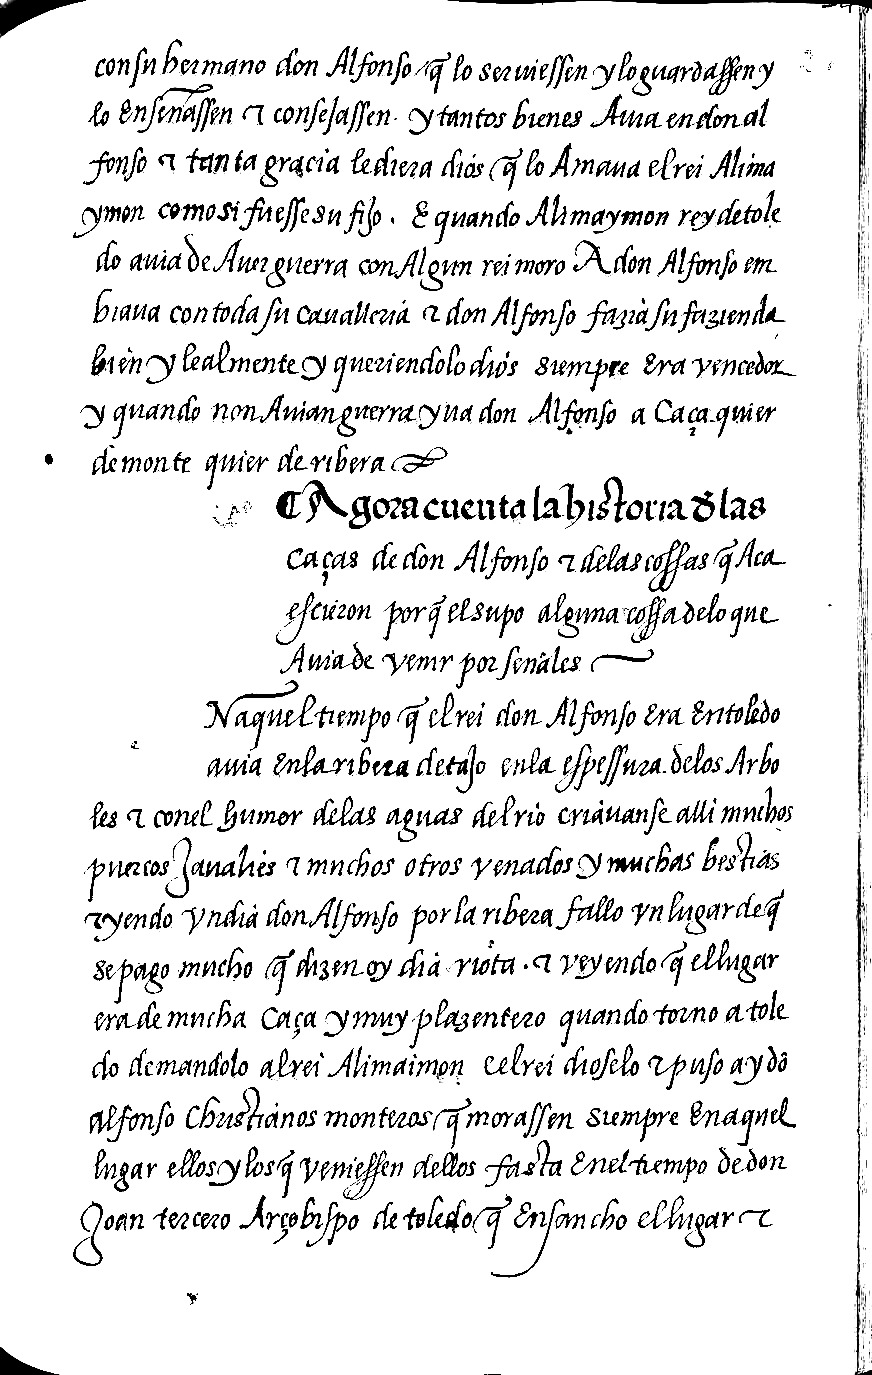 con su hermano don Alfonso q̃ lo seruiessen y lo guardassen y
lo Enseñassen ⁊ consejassen. y tantos bienes Auia en don al
fonso ⁊ tanta gracia le diera dios q̃ lo Amaua el rei Alima
ymon como si fuesse su fijo. E quando Alimaymon rey de tole
do auia de Auer guerra con Algun rei moro A don Alfonso em
biaua con toda su caualleria ⁊ don Alfonso fazia su fazienda
bien y lealmente y queriendolo dios siempre Era vencedor
y quando non Auian guerra yua don Alfonso a Caça. quier
de monte quier de ribera
¶ Agora cuenta la historia d̃ las
caças de don Alfonso ⁊ de las cossas q̃ Aca
escieron porq̃ el supo alguna cossa de lo que
Auia de venir por señales
Naquel tiempo q̃ el rei don Alfonso Era En toledo
auia En la ribera de tajo en la espessura. de los Arbo
les ⁊ con el humor de las aguas del rio criauanse alli muchos
puercos Jaualies ⁊ muchos otros venados y muchas bestias
⁊ yendo vn dia don Alfonso por la ribera fallo vn lugar de q̃
se pago mucho q̃ dizen oy dia riota. ⁊ veyendo q̃ el lugar
era de mucha Caça y muy plazentero quando torno a tole
do demandolo al rei Alimaimon E el rei dioselo ⁊ puso ay dõ
alfonso Christianos monteros q̃ morassen siempre En aquel
lugar ellos y los q̃ veniessen dellos fasta En el tiempo de don
Joan tercero Arçobispo de toledo q̃ Ensancho el lugar ⁊